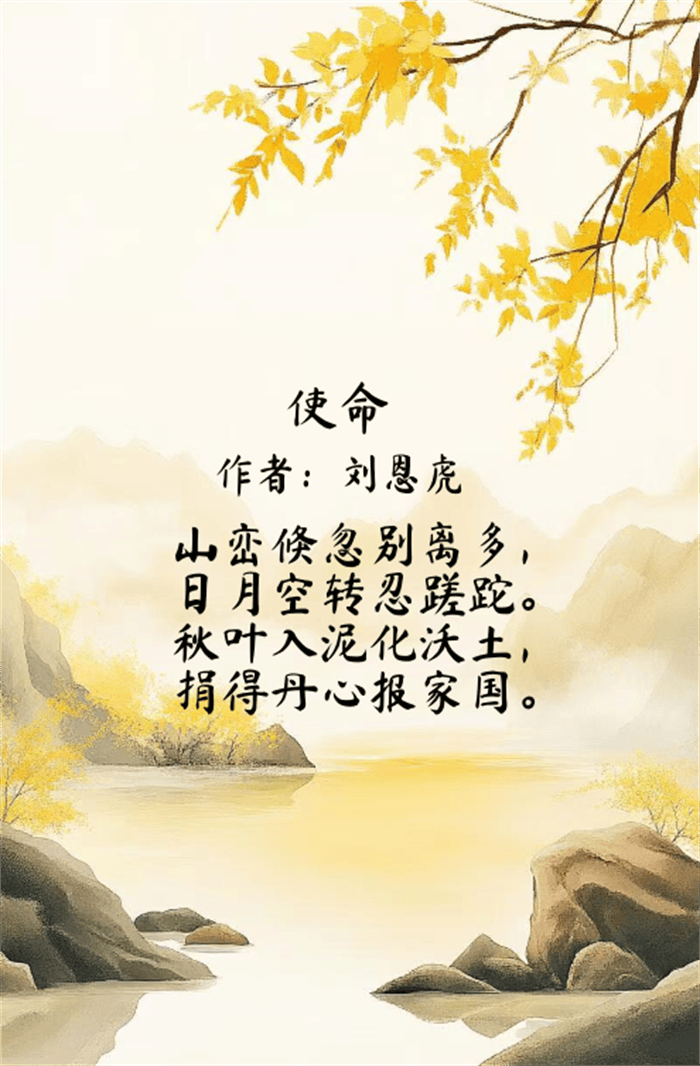 使命
作者：刘恩虎
山峦倏忽别离多，
日月空转忍蹉跎。
秋叶入泥化沃土，
捐得丹心报家国。